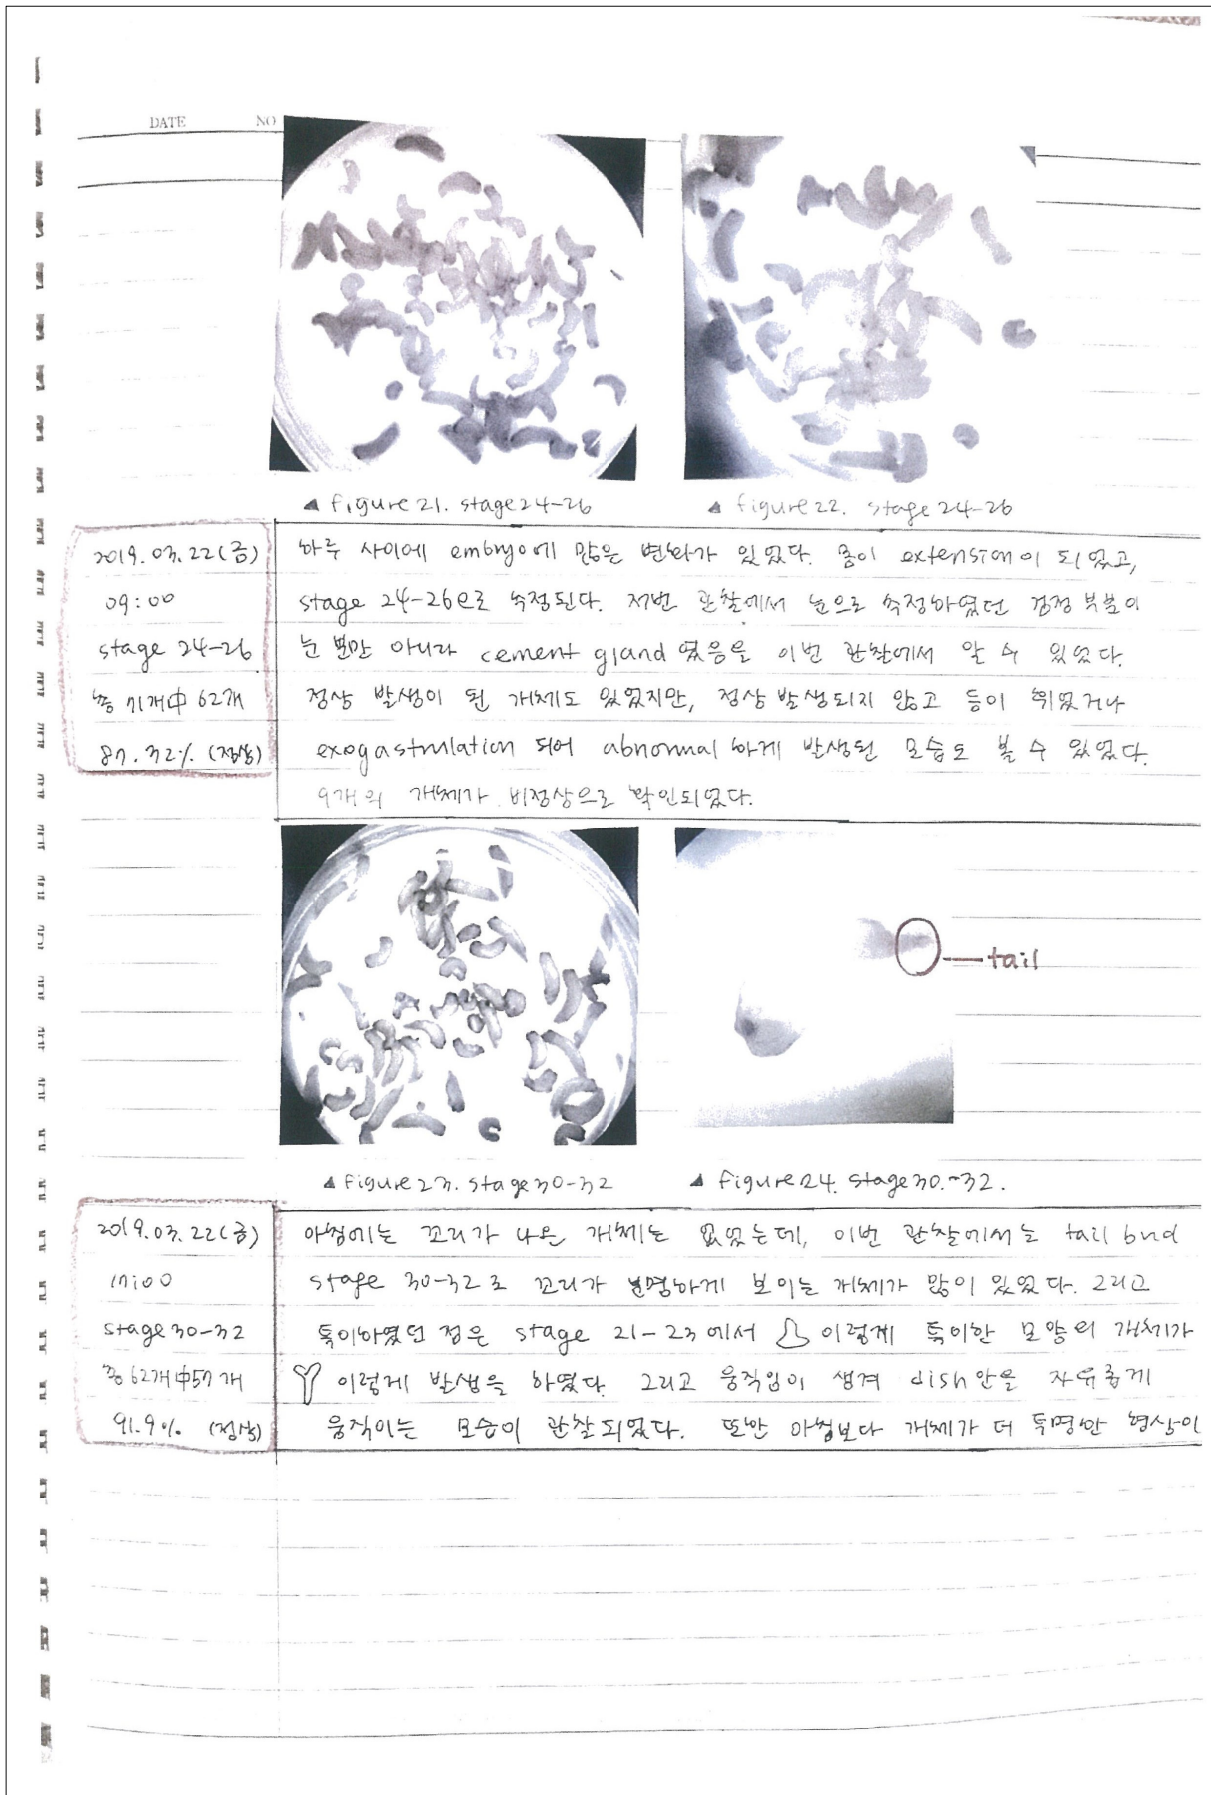 DATE NO
▲ figure 21. stage 24-26
▲ figure 22. stage 24-26
2019. 03. 22 (금)
09:00
stage 24-26
총 71개中 62개
87.32% (정상)
하루 사이에 embryo에 많은 변화가 있었다. 몸이 extension이 되었고,
stage 24-26으로 측정된다. 저번 관찰에서 눈으로 측정하였던 검정 부분이
눈 뿐만 아니라 cement gland 였음을 이번 관찰에서 알 수 있었다.
정상 발생이 된 개체도 있었지만, 정상 발생되지 않고 등이 휘었거나
exogastrulation 되어 abnormal 하게 발생된 모습도 볼 수 있었다.
9개의 개체가 비정상으로 확인되었다.
tail
▲ figure 23. stage 30-32
▲ figure 24. stage 30.-32.
2019. 03. 22 (금)
17:00
stage 30-32
총 62개中 57개
91.9% (정상)
아침에는 꼬리가 나온 개체는 없었는데, 이번 관찰에서는 tail bud
stage 30-32로 꼬리가 분명하게 보이는 개체가 많이 있었다. 그리고
특이하였던 점은 stage 21-23에서 이렇게 특이한 모양의 개체가
이렇게 발생을 하였다. 그리고 움직임이 생겨 dish 안을 자유롭게
움직이는 모습이 관찰되었다. 또한 아침보다 개체가 더 투명한 형상이